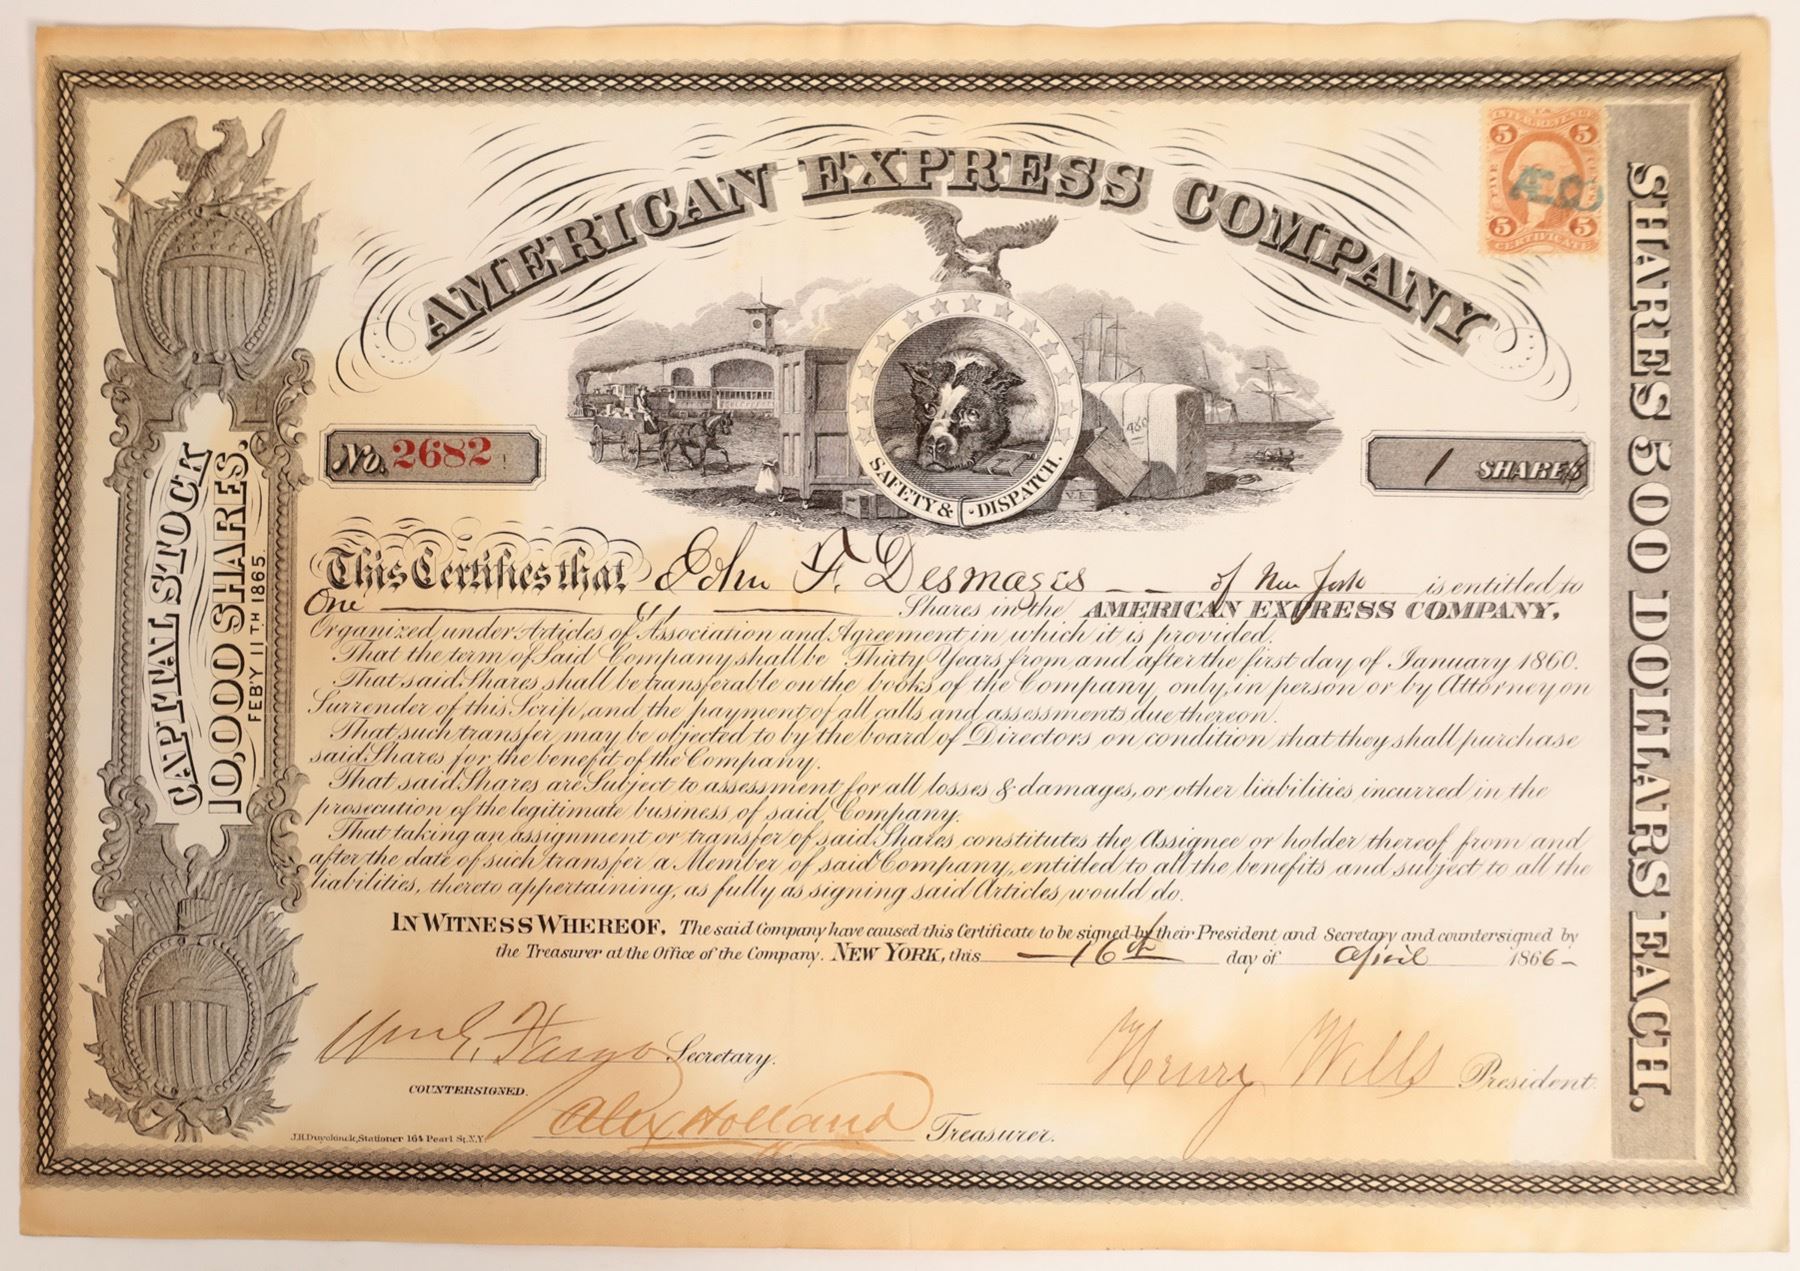 AMERICAN EXPRESS COMPANY
U.S. INTER. REVENUE
5 5
FIVE CENTS
AE Co
5 5
CERTIFICATE
SHARES 500 DOLLARS EACH.
CAPITAL STOCK
10,000 SHARES.
FEB'Y 11TH 1865.
No. 2682
480
SAFETY & DISPATCH.
1 SHARES
This Certifies that John F. Desmazes of New York is entitled to
One Shares in the AMERICAN EXPRESS COMPANY,
Organized under Articles of Association and Agreement in which it is provided.
That the term of Said Company shall be Thirty Years from and after the first day of January 1860.
That said Shares shall be transferable on the books of the Company, only, in person or by Attorney on
Surrender of this Scrip, and the payment of all calls and assessments due thereon.
That such transfer may be objected to by the board of Directors on condition that they shall purchase
said Shares for the benefit of the Company.
That said Shares are Subject to assessment for all losses & damages, or other liabilities incurred in the
prosecution of the legitimate business of said Company.
That taking an assignment or transfer of said Shares constitutes the Assignee or holder thereof from and
after the date of such transfer a Member of said Company, entitled to all the benefits and subject to all the
liabilities, thereto appertaining, as fully as signing said Articles would do.
IN WITNESS WHEREOF, The said Company have caused this Certificate to be signed by their President and Secretary and countersigned by
the Treasurer at the Office of the Company. NEW YORK, this 16th day of April 1866
Wm. G. Fargo Secretary.
Henry Wells President.
COUNTERSIGNED.
Alex Holland Treasurer.
J.H. Duyckinck, Stationer 164 Pearl St. N.Y.